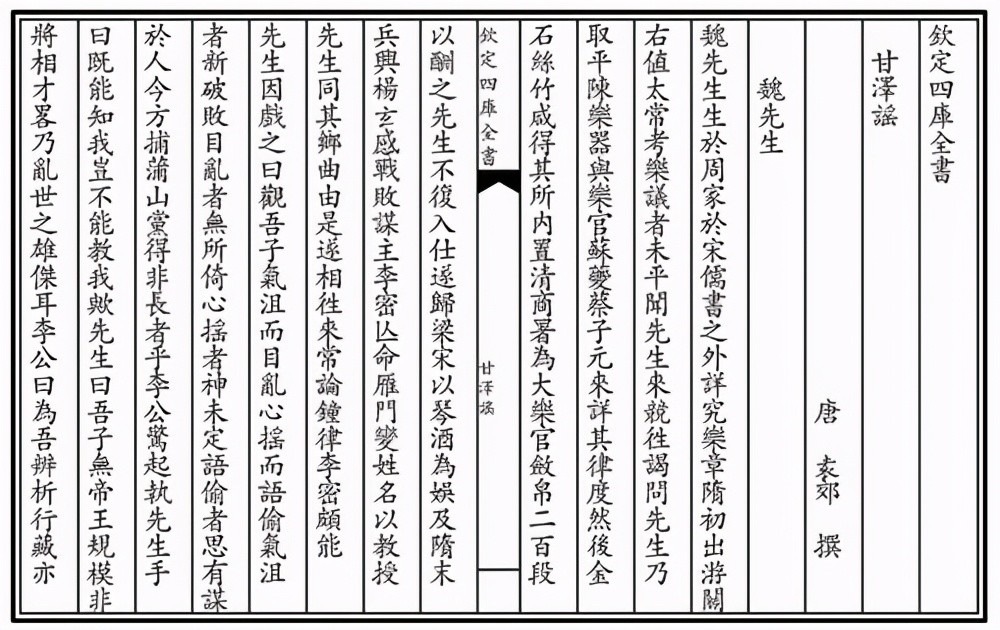 欽定四庫全書
甘澤謡
唐 袁郊 撰
魏先生
魏先生生於周家於宋儒書之外詳究樂章隋初出游關
右值太常考樂議者未平聞先生來競徃謁問先生乃
取平陳樂器與樂官蘇夔蔡子元來詳其律度然後金
石絲竹咸得其所内置清商署為大樂官斂帛二百段
欽定四庫全書
甘澤謡
以酬之先生不復入仕遂歸梁宋以琴酒為娱及隋末
兵興楊𤣥感戰敗謀主李密亾命雁門變姓名以教授
先生同其鄉曲由是遂相徃來常論鐘律李密頗能
先生因戲之曰觀吾子氣沮而目亂心揺而語偷氣沮
者新破敗目亂者無所倚心揺者神未定語偷者思有謀
於人今方捕蒲山黨得非長者乎李公驚起執先生手
曰既能知我豈不能教我歟先生曰吾子無帝王規模非
將相才畧乃亂世之雄傑耳李公曰為吾辨析行藏亦